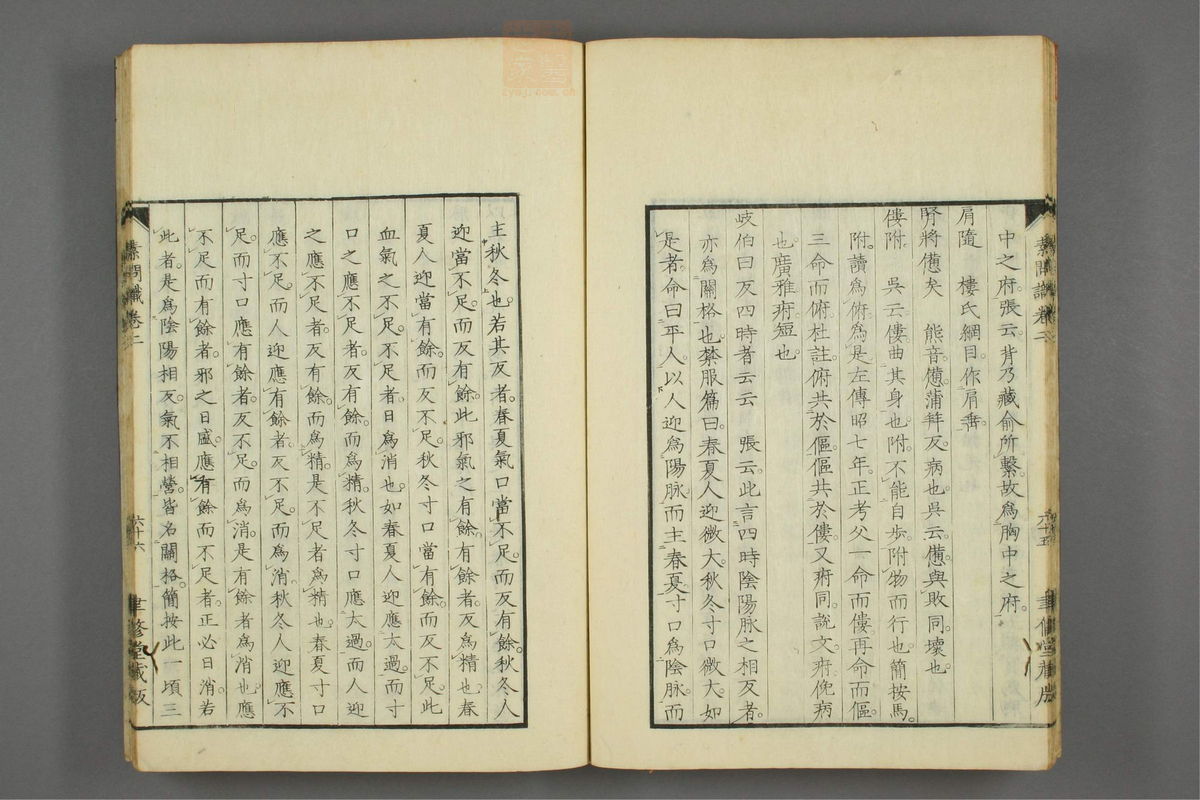 中之府張云背乃藏俞所繫故爲胸中之府
肩隨　樓氏綱目作肩垂
腎將憊矣　熊音憊蒲拜反病也吳云憊與敗同壞也
僂附　吳云僂曲其身也附不能自步附物而行也簡按馬
附讀爲俯爲是左傳昭七年正考父一命而僂再命而傴
三命而俯杜註俯共於傴傴共於僂又㾈同說文㾈俛病
也廣雅㾈短也
岐伯曰反四時者云云　張云此言四時陰陽脉之相反者
亦爲關格也禁服篇曰春夏人迎微大秋冬寸口微大如
是者命曰平人以人迎爲陽脉而主春夏寸口爲陰脉而
素問識卷二
六十五
聿修堂藏版
主秋冬也若其反者春夏氣口當不足而反有餘秋冬人
迎當不足而反有餘此邪氣之有餘有餘者反爲精也春
夏人迎當有餘而反不足秋冬寸口當有餘而反不足此
血氣之不足不足者日爲消也如春夏人迎應太過而寸
口之應不足者反有餘而爲精秋冬寸口應太過而人迎
之應不足者反有餘而爲精是不足者爲精也春夏寸口
應不足而人迎應有餘者反不足而爲消秋冬人迎應不
足而寸口應有餘者反不足而爲消是有餘者爲消也應
不足而有餘者邪之日盛應有餘而不足者正必日消若
此者是爲陰陽相反氣不相營皆名關格簡按此一項三
素問識卷二
六十六
聿修堂藏版